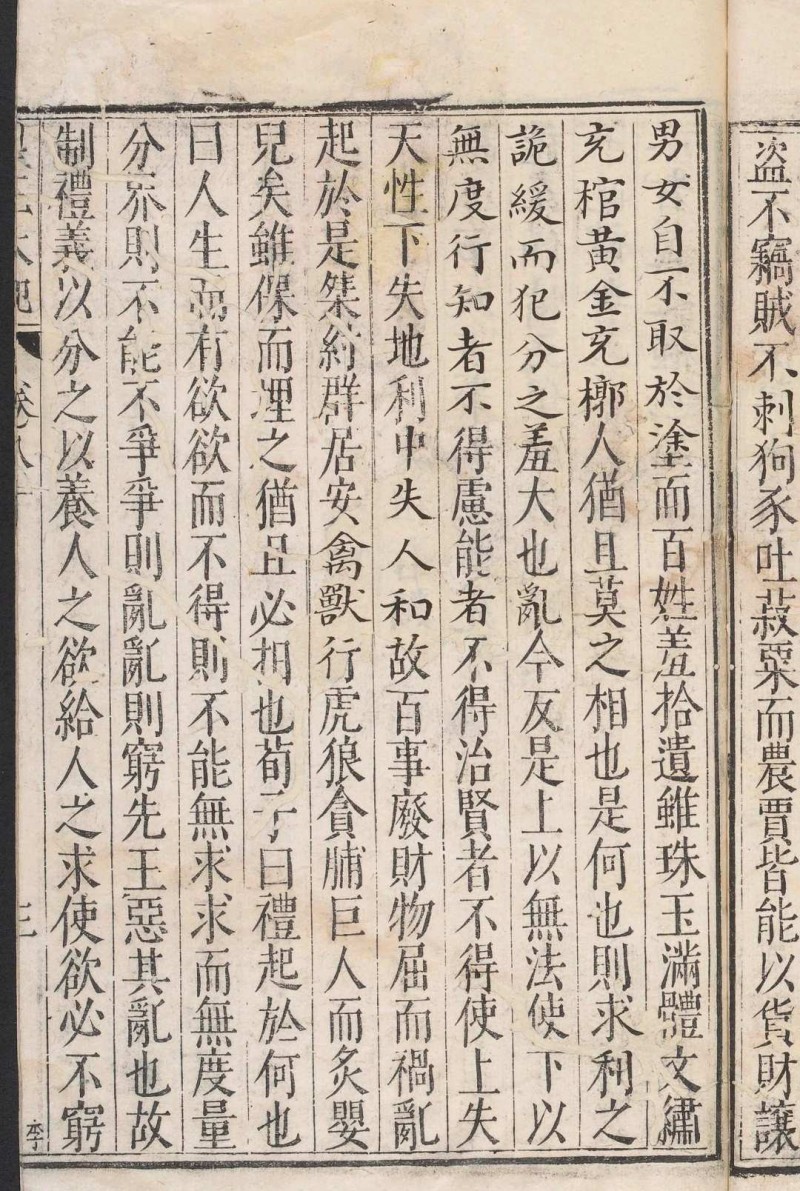 盜不竊賊不刺狗豕吐菽粟而農賈皆能以貨財讓
男女自不取於塗而百姓羞拾遺雖珠玉滿體文繡
充棺黃金充槨人猶且莫之相也是何也則求利之
詭緩而犯分之羞大也亂今反是上以無法使下以
無度行知者不得慮能者不得治賢者不得使上失
天性下失地利中失人和故百事廢財物屈而禍亂
起於是桀紂群居安禽獸行虎狼貪脯巨人而炙嬰
兒矣雖倮而埋之猶且必抇也荀子曰禮起於何也
曰人生而有欲欲而不得則不能無求求而無度量
分界則不能不爭爭則亂亂則窮先王惡其亂也故
制禮義以分之以養人之欲給人之求使欲必不窮
皇王大紀 卷八十 三 李